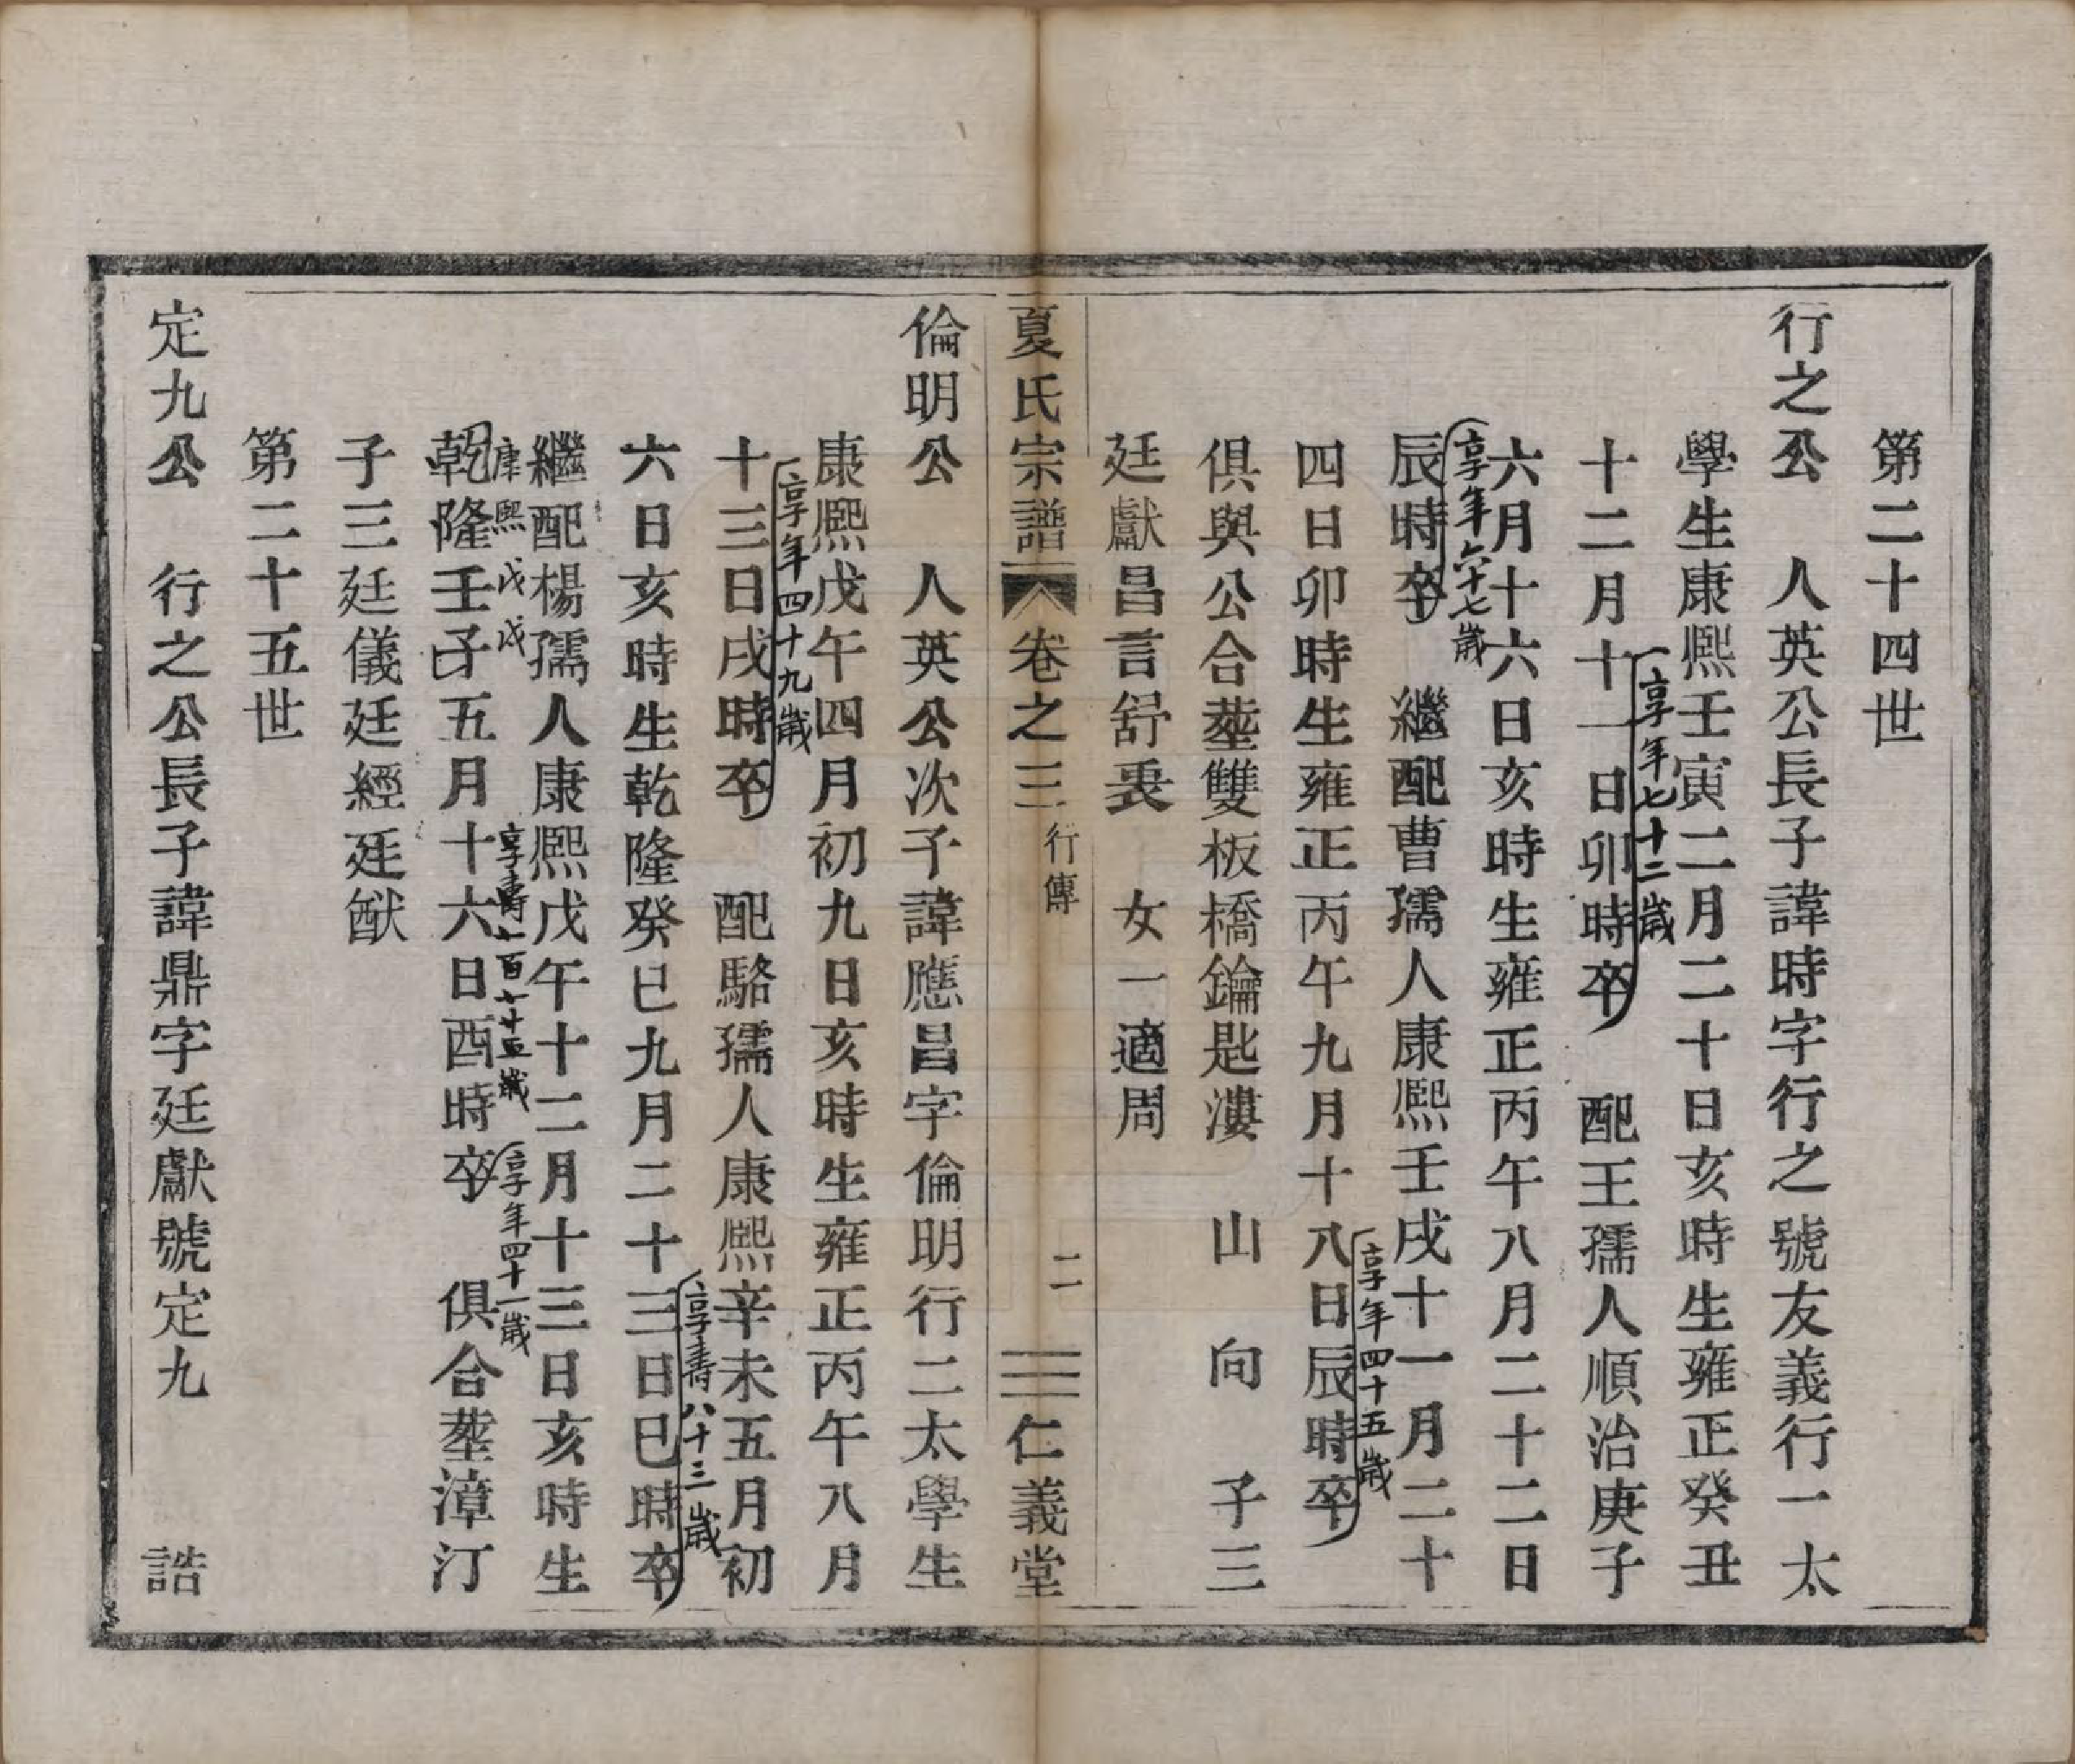 第二十四世
行之公　人英公長子諱時字行之號友義行一太
學生康熙壬寅二月二十日亥時生雍正癸丑
享年七十二歲
十二月十一日卯時卒　配王孺人順治庚子
六月十六日亥時生雍正丙午八月二十二日
享年六十七歲
辰時卒　繼配曹孺人康熙壬戌十一月二十
享年四十五歲
四日卯時生雍正丙午九月十八日辰時卒
俱與公合塟雙板橋鑰匙漊　山　向　子三
廷獻昌言舒㐮　女一適周
夏氏宗譜　卷之三　行傳　二　仁義堂
倫明公　人英公次子諱應昌字倫明行二太學生
康熙戊午四月初九日亥時生雍正丙午八月
享年四十九歲
十三日戌時卒　配駱孺人康熙辛未五月初
享壽八十三歲
六日亥時生乾隆癸巳九月二十三日巳時卒
繼配楊孺人康熙戊午十二月十三日亥時生
康熙戊戌　享壽一百七十五歲　享年四十一歲
乾隆壬子五月十六日酉時卒　俱合塟漳汀
子三廷儀廷經廷猷
第二十五世
定九公　行之公長子諱鼎字廷獻號定九　誥